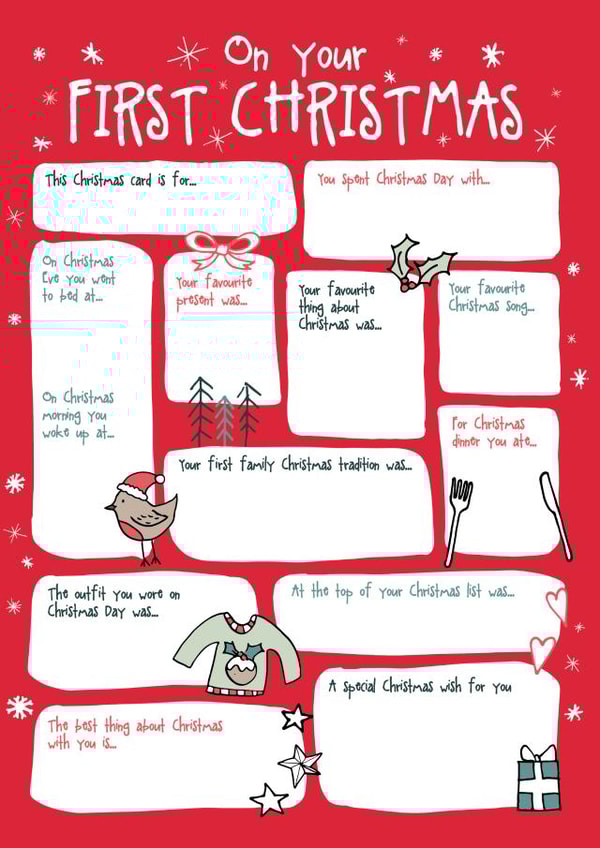 On Your
FIRST CHRISTMAS
This Christmas card is for...
You spent Christmas Day with...
On Christmas
Eve you went
to bed at...
On Christmas
morning you
woke up at...
Your favourite
present was...
Your favourite
thing about
Christmas was...
Your favourite
Christmas song...
For Christmas
dinner you ate...
Your first family Christmas tradition was...
The outfit you wore on
Christmas Day was...
At the top of your Christmas list was...
The best thing about Christmas
with you is...
A special Christmas wish for you